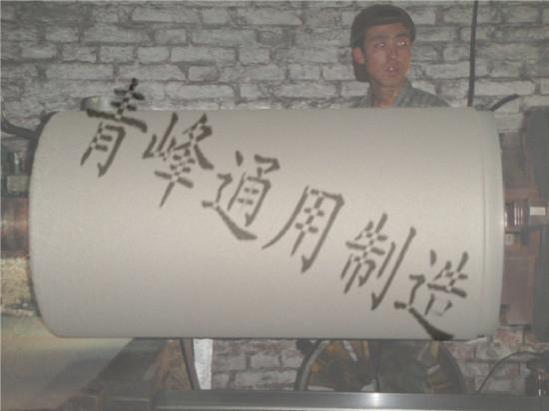 青峰通用制造